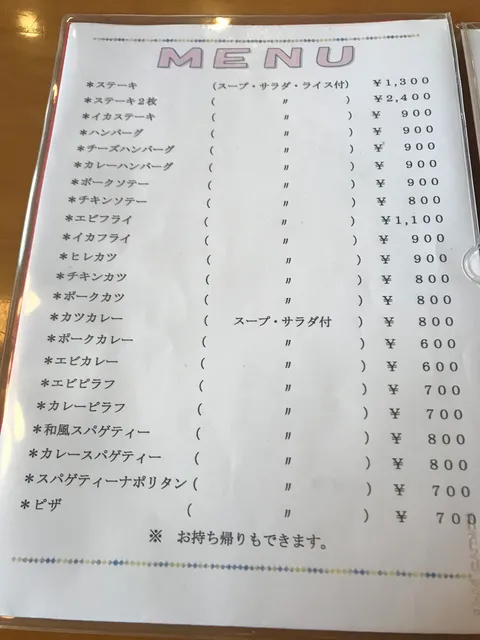 MENU
＊ステーキ （スープ・サラダ・ライス付） ￥１,３００
＊ステーキ２枚 （ 〃 ） ￥２,４００
＊イカステーキ （ 〃 ） ￥ ９００
＊ハンバーグ （ 〃 ） ￥ ９００
＊チーズハンバーグ （ 〃 ） ￥ ９００
＊カレーハンバーグ （ 〃 ） ￥ ９００
＊ポークソテー （ 〃 ） ￥ ９００
＊チキンソテー （ 〃 ） ￥ ８００
＊エビフライ （ 〃 ） ￥１,１００
＊イカフライ （ 〃 ） ￥ ９００
＊ヒレカツ （ 〃 ） ￥ ９００
＊チキンカツ （ 〃 ） ￥ ８００
＊ポークカツ （ 〃 ） ￥ ８００
＊カツカレー （ スープ・サラダ付 ） ￥ ８００
＊ポークカレー （ 〃 ） ￥ ６００
＊エビカレー （ 〃 ） ￥ ６００
＊エビピラフ （ 〃 ） ￥ ７００
＊カレーピラフ （ 〃 ） ￥ ７００
＊和風スパゲティー （ 〃 ） ￥ ８００
＊カレースパゲティー （ 〃 ） ￥ ８００
＊スパゲティーナポリタン （ 〃 ） ￥ ７００
＊ピザ （ 〃 ） ￥ ７００
※ お持ち帰りもできます。